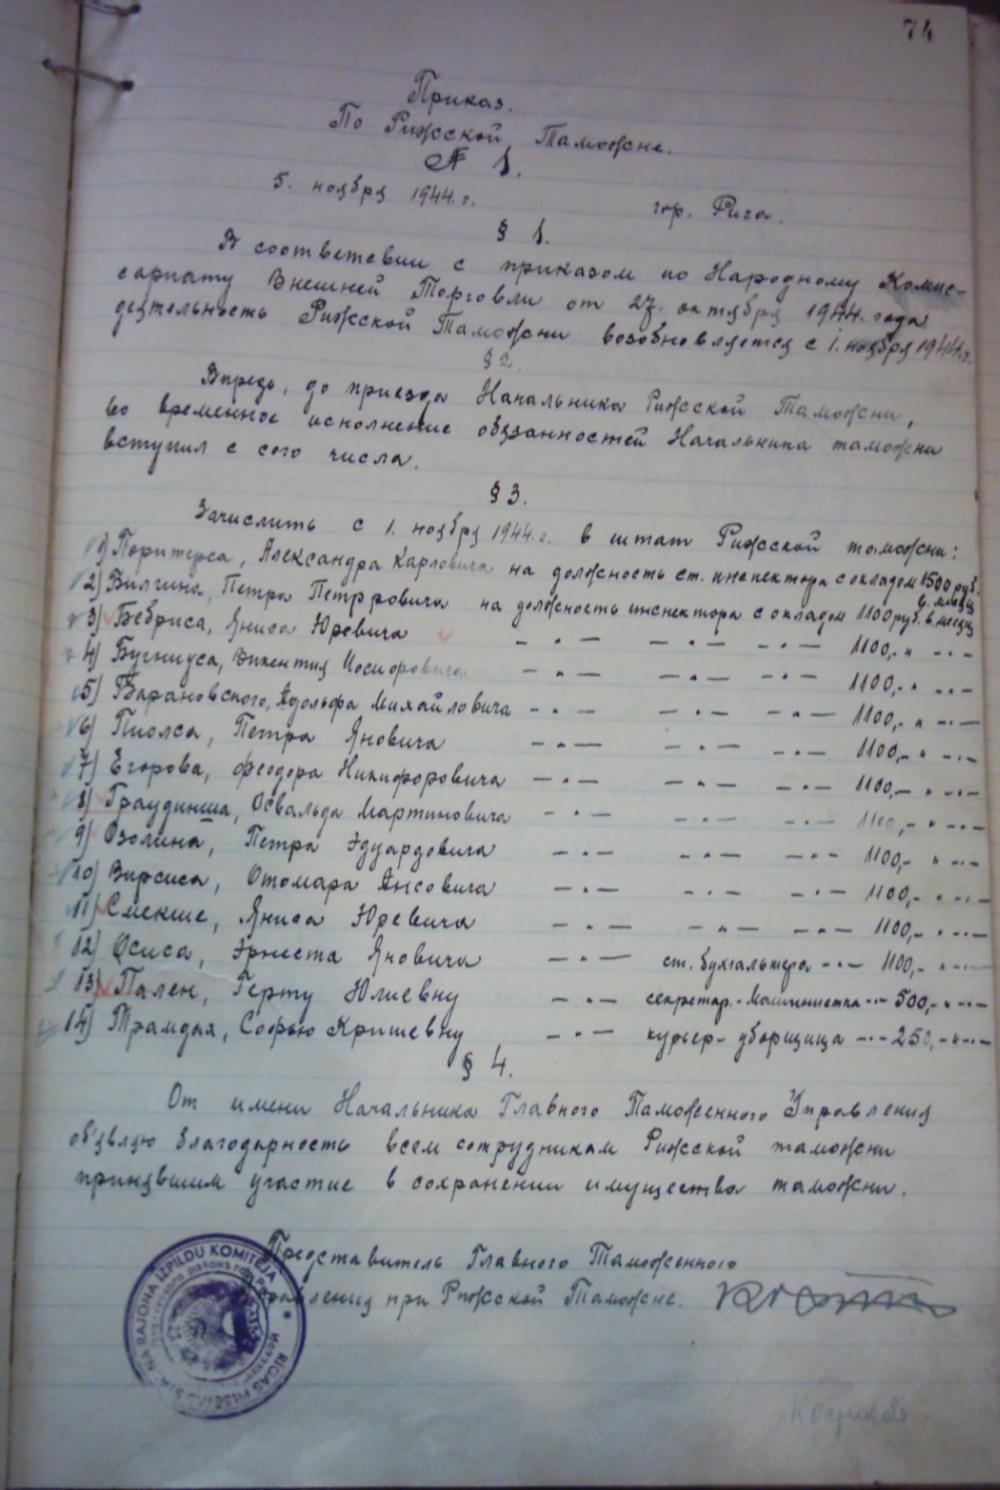 74
Приказ.
По Рижской Таможне.
№ 1.
5. ноября 1944. г. гор. Рига.
§ 1.
В соответсвии с приказом по Народному Комис-
сариату Внешней Торговли от 27. октября 1944. года
деятельность Рижской Таможни возобновляется с 1. ноября 1944 г.
§ 2.
Впредь, до приезда Начальника Рижской Таможни,
во временное исполнение обязанностей Начальника таможни
вступил с сего числа.
§ 3.
Зачислить с 1. ноября 1944. г. в штат Рижской таможни:
1) Александра Карловича на должность ст. инспектора с окладом 1500 руб.
в месяц
2) Вилцина, Петра Петровича на должность инспектора с окладом 1100 руб. в месяц
3) Бебриса, Яниса Юревича — " — — " — — " — 1100,- " — " —
4) Бугниуса, Викентия Иосиоровича — " — — " — — " — 1100,- " — " —
5) Барановского, Адольфа Михайловича — " — — " — — " — 1100,- " — " —
6) Пиолса, Петра Яновича — " — — " — — " — 1100,- " — " —
7) Егорова, Феодора Никифоровича — " — — " — — " — 1100,- " — " —
8) Граудинша, Освальда Мартиновича — " — — " — — " — 1100,- " — " —
9) Озолина, Петра Эдуардовича — " — — " — — " — 1100,- " — " —
10) Вирсиса, Отомара Ансовича — " — — " — — " — 1100,- " — " —
11) Смекше, Яниса Юревича — " — — " — — " — 1100,- " — " —
12) Осиса, Эрнеста Яновича — " — ст. бухгальтера — " — 1100,- " — " —
13) Пален, Герту Юлиевну — " — секретар.- машинистка — " — 500,- " — " —
14) Трамдах, Софью Кришевну — " — курьер - уборщица — " — 250,- " — " —
§ 4.
От имени Начальника Главного Таможенного Управления
об'являю благодарность всем сотрудникам Рижской таможни
принявшим участие в сохранении имущества таможни.
Представитель Главного Таможенного
Управления при Рижской Таможне.
NA RAJONA IZPILDU KOMITEJA
RIGAS PILSĒTAS